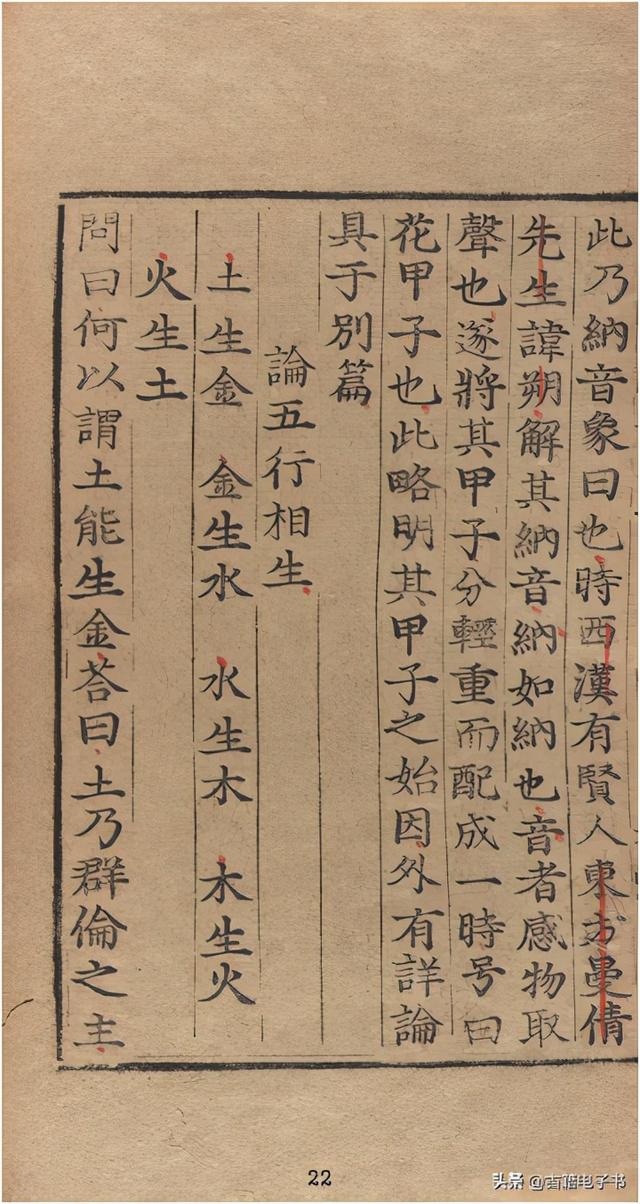 此乃納音象曰也時西漢有賢人東方曼倩
先生諱朔解其納音納如納也音者感物取
聲也遂將其甲子分輕重而配成一時号曰
花甲子也此略明其甲子之始因外有詳論
具于別篇
論五行相生
土生金 金生水 水生木 木生火
火生土
問曰何以謂土能生金荅曰土乃群倫之主
22
头条 @古籍电子书